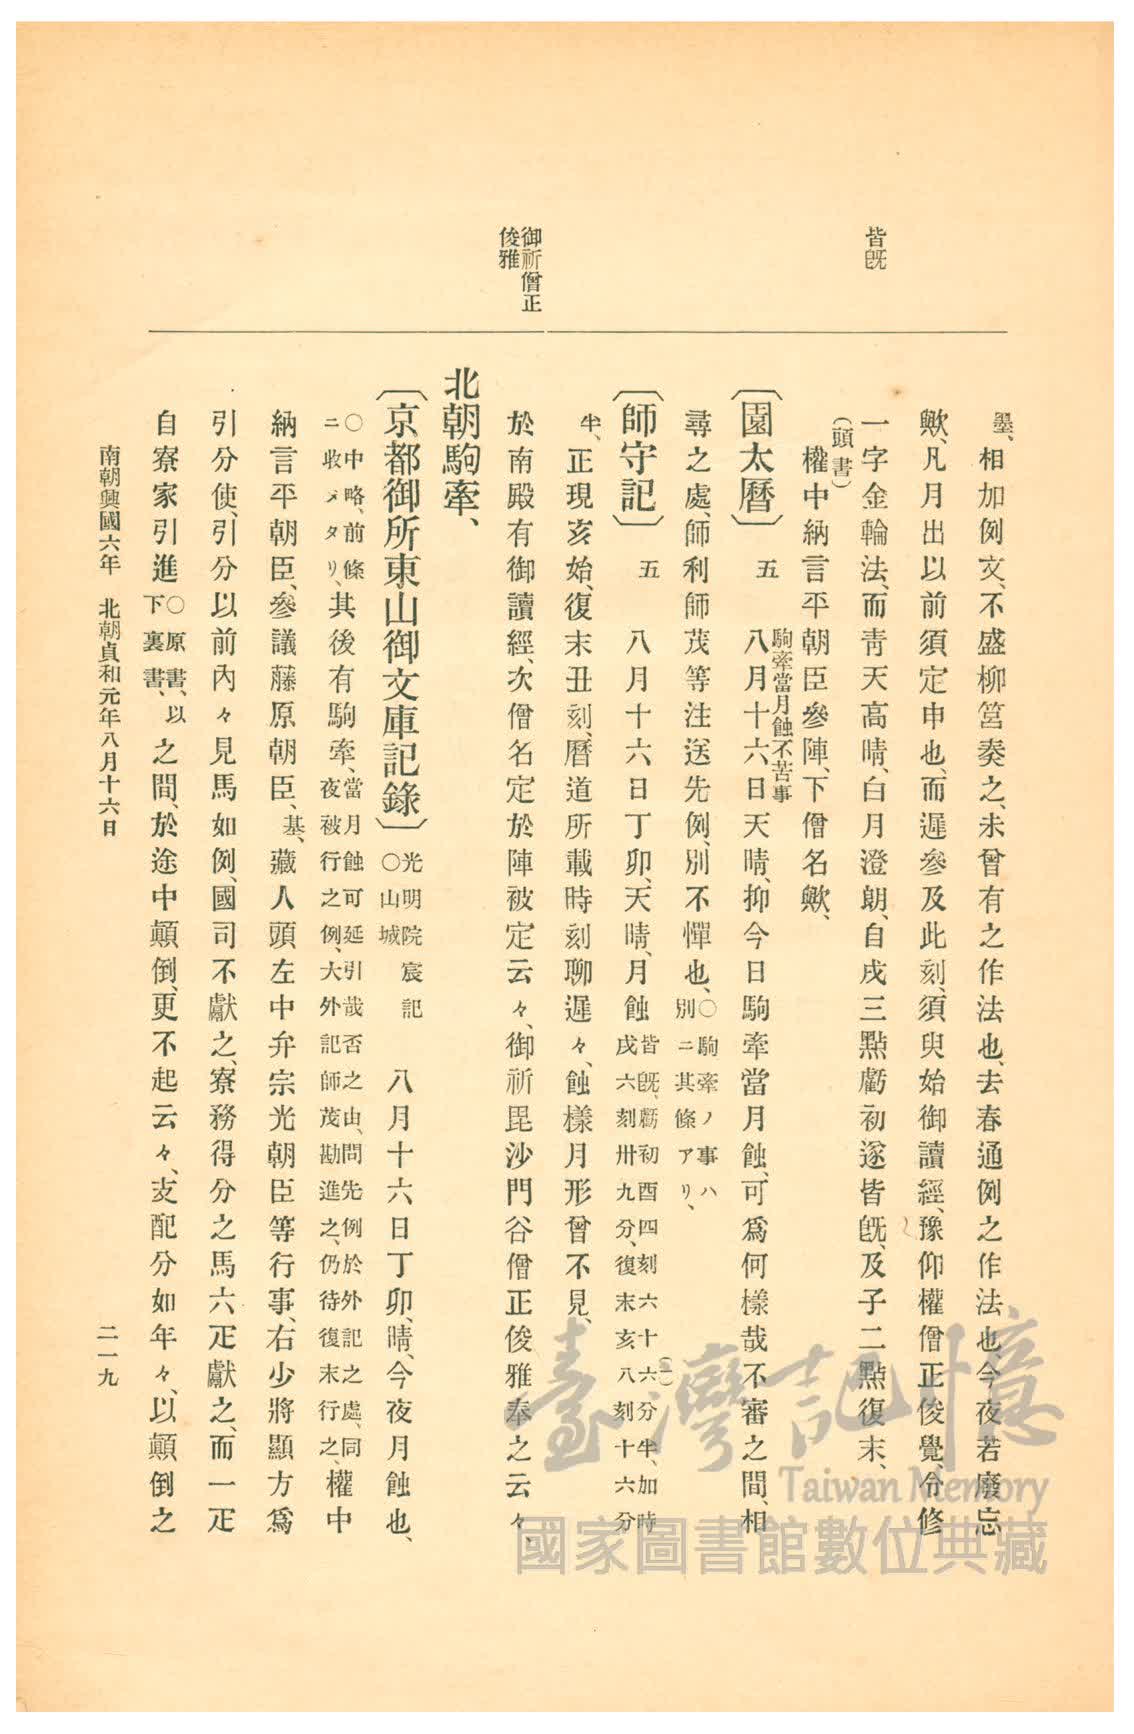 皆既
御祈僧正
俊雅
墨、相加例文、不盛柳筥奏之、未曾有之作法也、去春通例之作法也今夜若廢忘
歟、凡月出以前須定申也、而遲參及此刻、須臾始御讀經、豫仰權僧正俊覺、令修
一字金輪法、而靑天高晴、白月澄朗、自戌三點虧初遂皆既、及子二點復末、
(頭書)
權中納言平朝臣參陣、下僧名歟、
〔園太曆〕 五 駒牽當月蝕不苦事 八月十六日天晴、抑今日駒牽當月蝕、可爲何樣哉不審之間、相
尋之處、師利師茂等注送先例、別不憚也、○駒牽ノ事ハ別ニ其條アリ、
〔師守記〕 五 八月十六日丁卯、天晴、月蝕皆既、虧初酉四刻六十六(一)分半、加時戌六刻卅九分、復末亥八刻十六分
半、正現亥始、復末丑刻、曆道所載時刻聊遲々、蝕樣月形曾不見、
於南殿有御讀經、次僧名定於陣被定云々、御祈毘沙門谷僧正俊雅奉之云々、
北朝駒牽、
〔京都御所東山御文庫記錄〕 光明院宸記○山城 八月十六日丁卯、晴、今夜月蝕也、
○中略、前條ニ收メタリ、其後有駒牽、當月蝕可延引哉否之由、問先例於外記之處、同夜被行之例、大外記師茂勘進之、仍待復末行之、權中
納言平朝臣、參議藤原朝臣、基、藏人頭左中弁宗光朝臣等行事、右少將顯方爲
引分使、引分以前內々見馬如例、國司不獻之、寮務得分之馬六疋獻之、而一疋
自寮家引進○原書、以下裏書、之間、於途中顚倒、更不起云々、支配分如年々、以顚倒之
南朝興國六年 北朝貞和元年八月十六日
二一九
臺灣記憶
Taiwan Memory
國家圖書館數位典藏